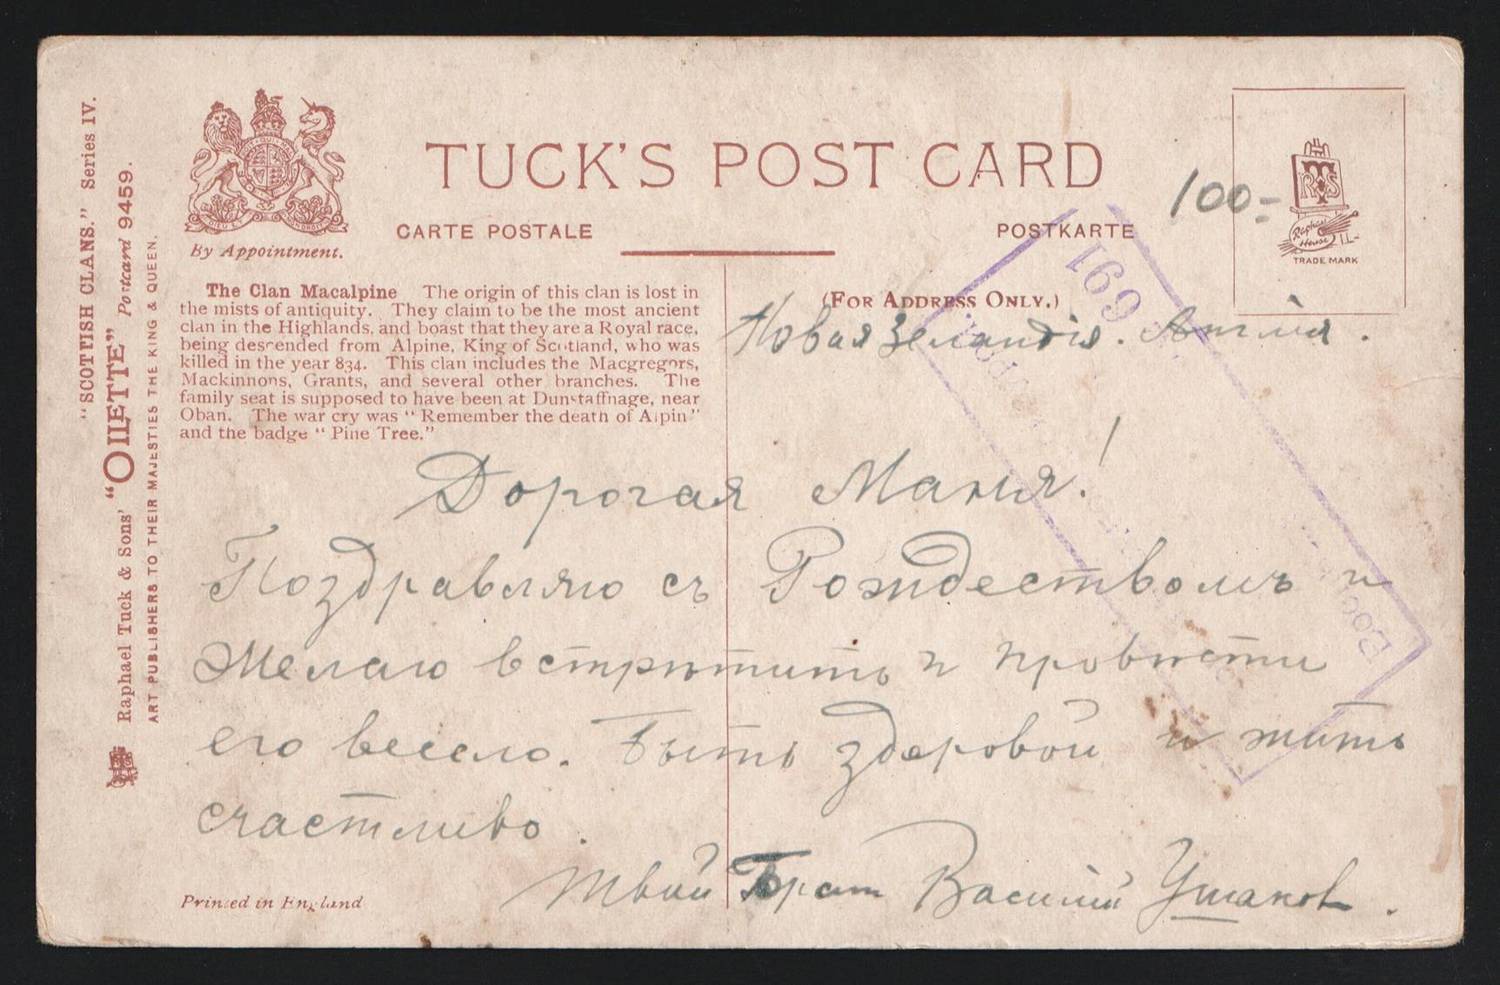 "SCOTTISH CLANS." Series IV.
Raphael Tuck & Sons' "OILETTE" Postcard 9459.
ART PUBLISHERS TO THEIR MAJESTIES THE KING & QUEEN.
By Appointment.
TUCK'S POST CARD
CARTE POSTALE
POSTKARTE
100=
TRADE MARK
(FOR ADDRESS ONLY.)
691
The Clan Macalpine The origin of this clan is lost in
the mists of antiquity. They claim to be the most ancient
clan in the Highlands, and boast that they are a Royal race,
being descended from Alpine, King of Scotland, who was
killed in the year 834. This clan includes the Macgregors,
Mackinnons, Grants, and several other branches. The
family seat is supposed to have been at Dunstaffnage, near
Oban. The war cry was "Remember the death of Alpin"
and the badge "Pine Tree."
Новая Зеландія. Англія.
Дорогая Маня!
Поздравляю съ Рождествомъ и
Желаю встрѣтить и провѣсти
его весело. Быть здоровой и жить
счастливо.
Твой Брат Василій Ушаков.
Printed in England